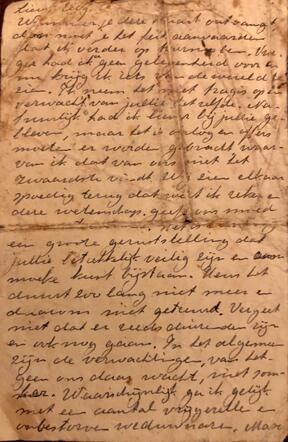 Wanneer je deze kaart ontvangt
dan moet je het feit aanvaarden
dat ik verder op transport ben. Vro
ger had ik geen gelegenheid voor en
nu krijg ik iets van de wereld te
zien. Ik neem het niet tragisch op
verwacht van jullie hetzelfde. Na-
tuurlijk had ik liever bij jullie ge-
bleven, maar het is oorlog en offers
moeten er worden gebracht waar-
van ik dat van ons niet het
zwaarste vindt. Wij zien elkaar
spoedig terug dat weet ik zeker
deze wetenschap geeft ons moed
een groote geruststelling dat
jullie betrekkelijk veilig zijn en
moeke kunt bijstaan. Heus het
duurt zoo lang niet meer en
daarom niet getreurd. Vergeet
niet dat er reeds duizenden zijn
en ook nog gaan. In het algemeen
zijn de verwachtingen, van het-
geen ons daar wacht, niet
Waarschijnlijk ga ik gelijk
met een aantal vrijgezellen en
onbestorven weduwnaars. Maar